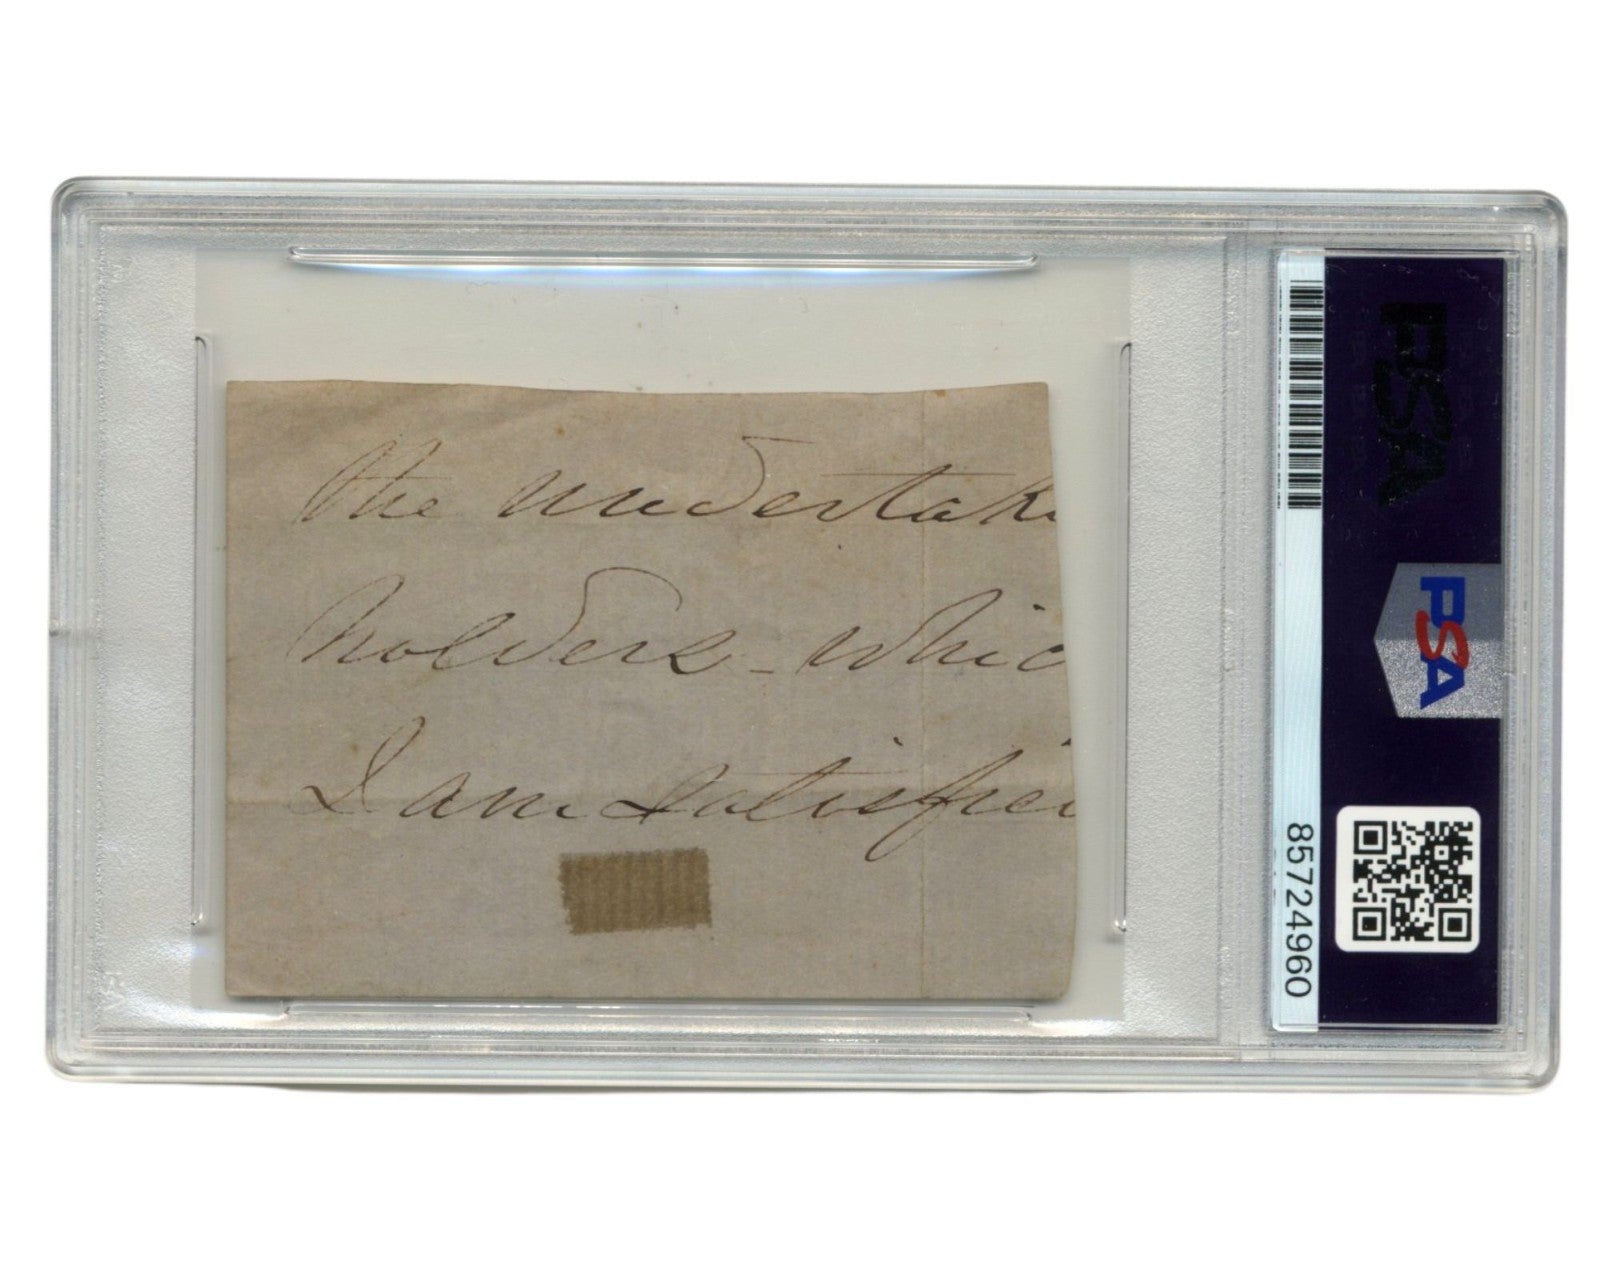 the undertak
holders - whic
I am satisfie
PSA
PSA
85724960